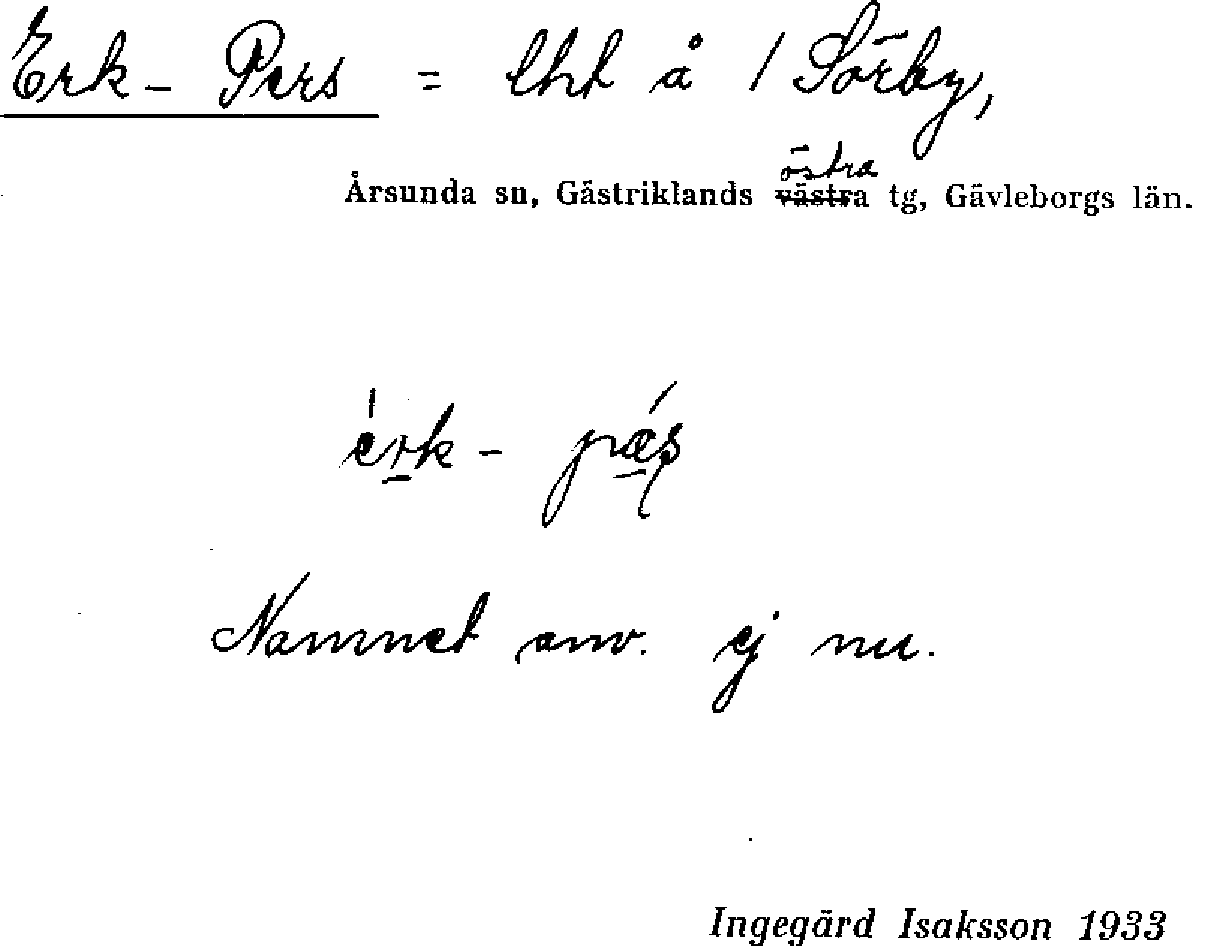 Erk-Pers = lht å 1 Sörby,
östra
Årsunda sn, Gästriklands västra tg, Gävleborgs län.
érk- pǽs
Namnet anv. ej nu.
Ingegärd Isaksson 1933